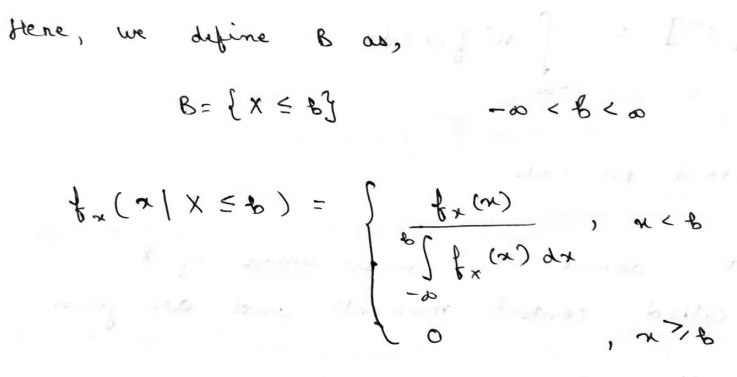 Here, we define B as,
B = { X ≤ b } -∞ < b < ∞
f_x (x | X ≤ b) = { f_x (x) / ∫_{-∞}^{b} f_x (x) dx , x < b
0 , x ≥ b